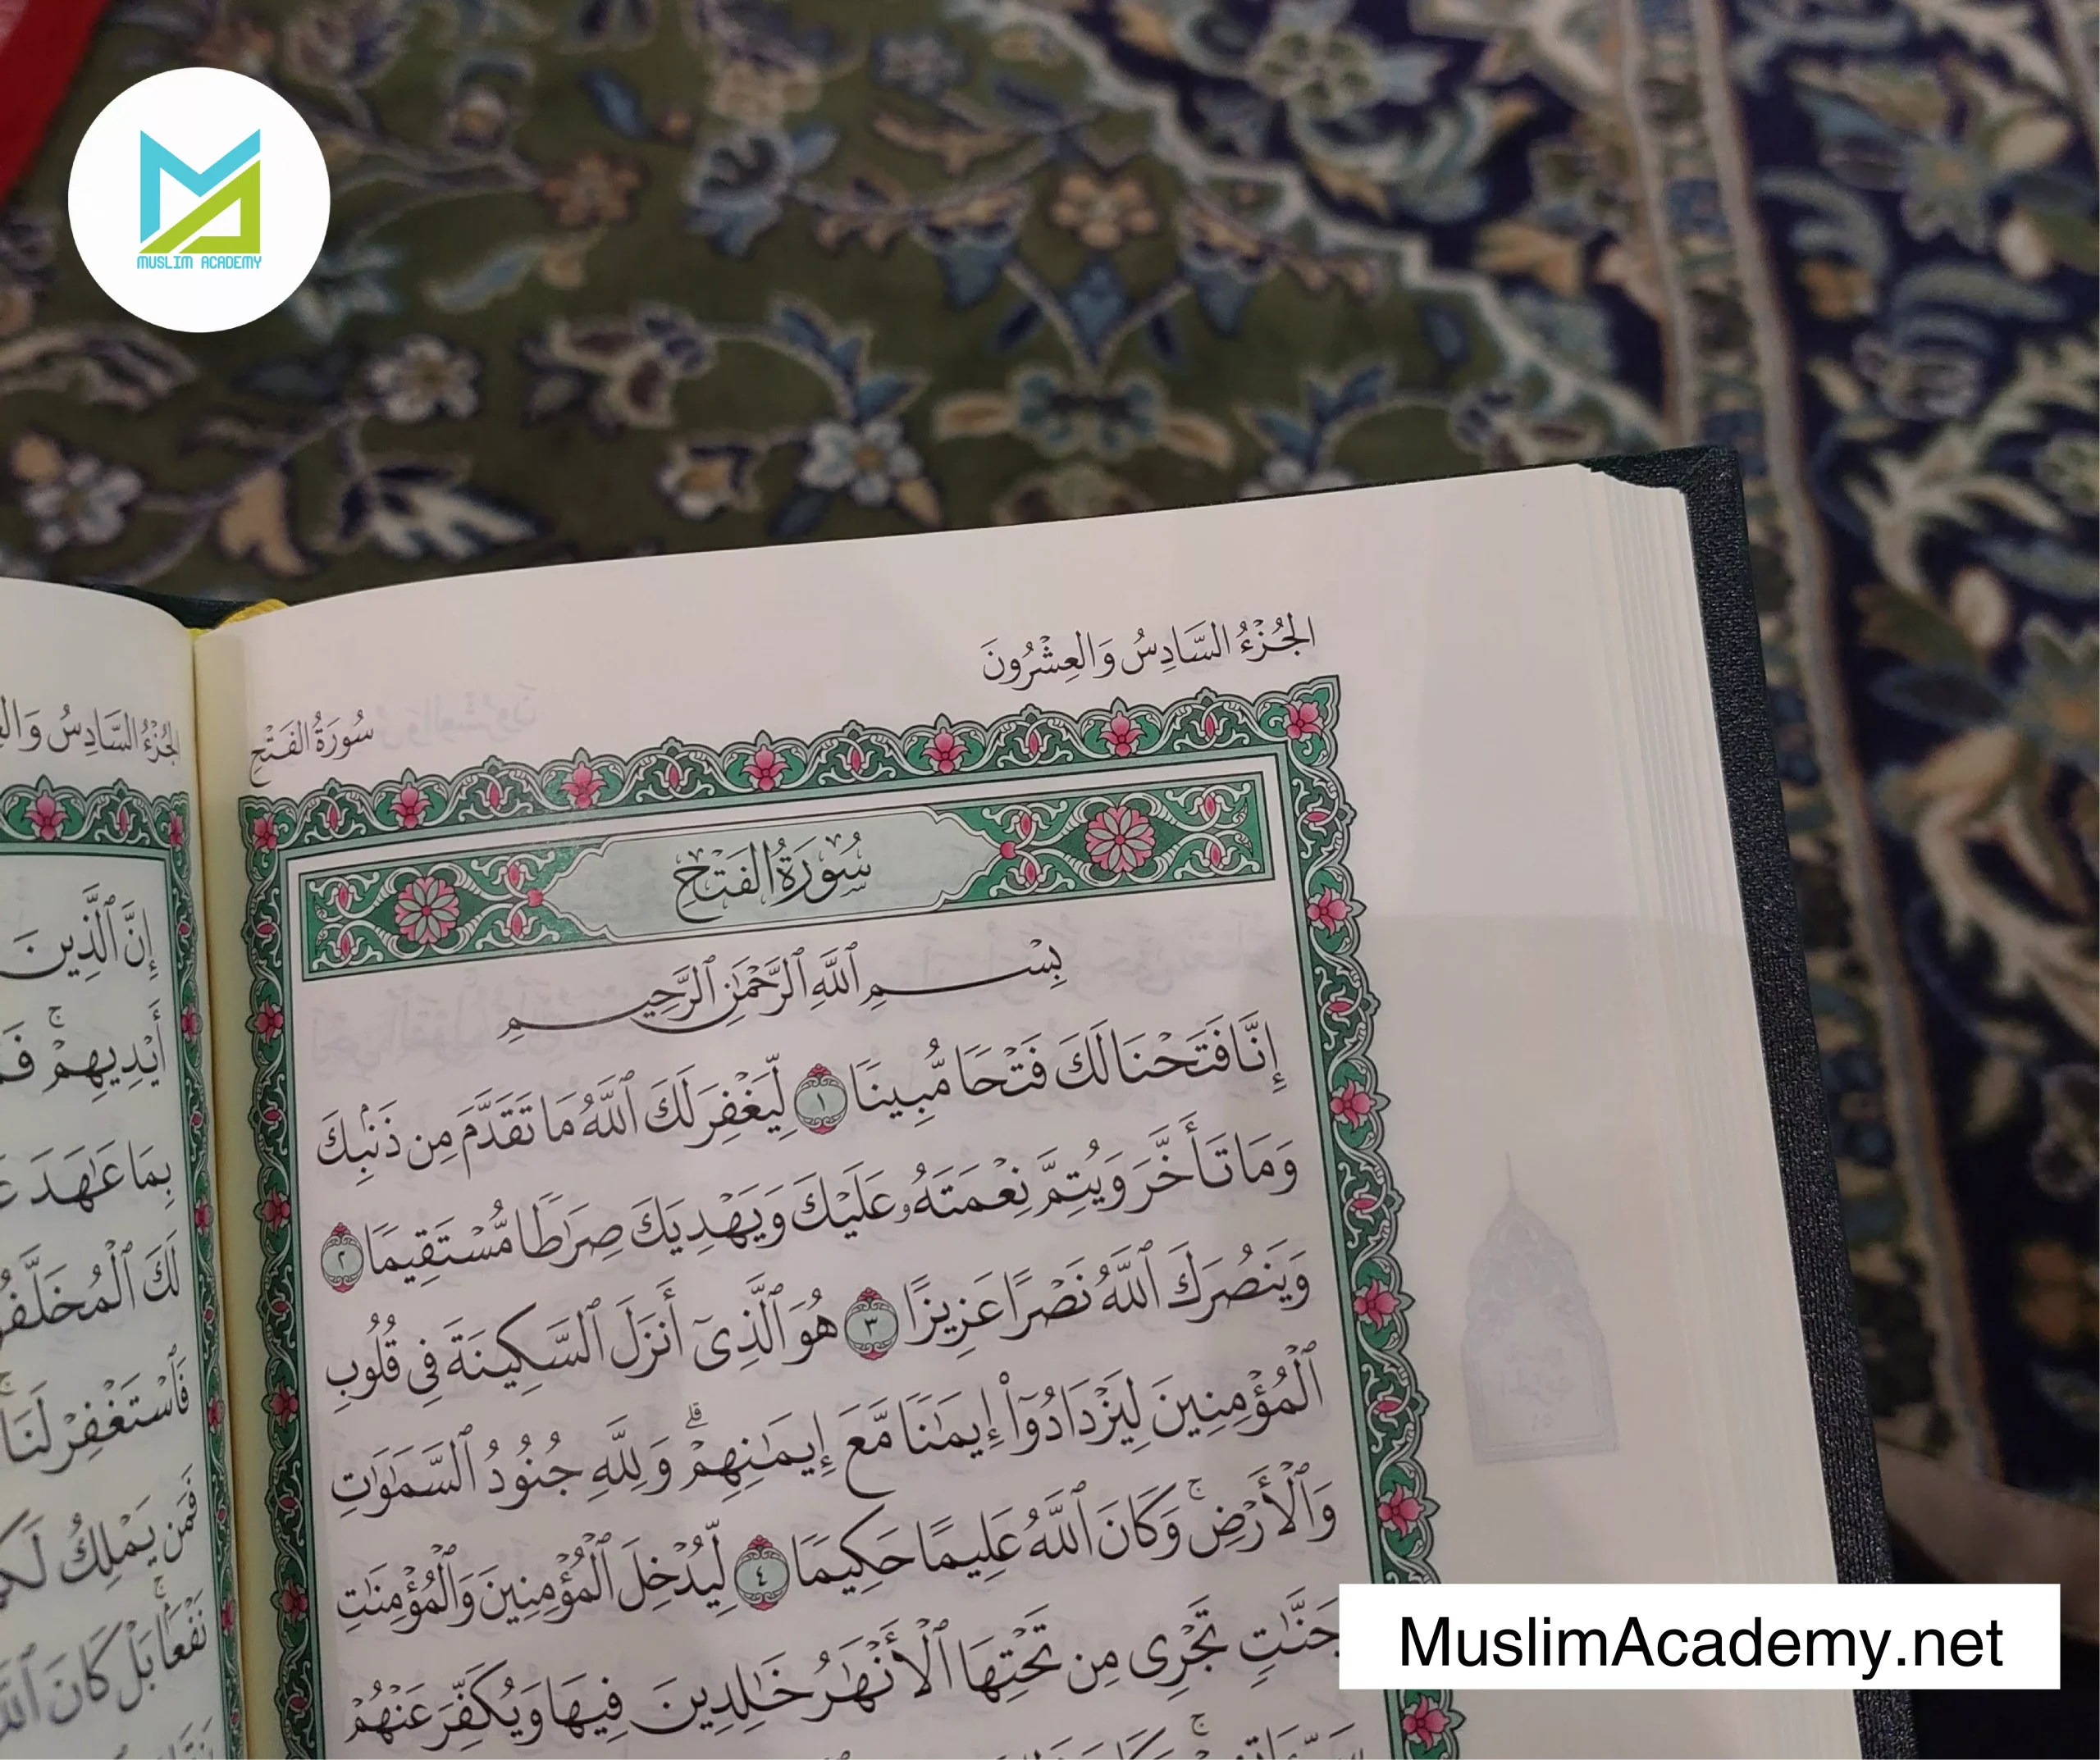 MUSLIM ACADEMY
الجُزْءُ السَّادِسُ وَالعِشْرُونَ
سُورَةُ الفَتْحِ
سُورَةُ الفَتْحِ
بِسْمِ ٱللَّهِ ٱلرَّحْمَٰنِ ٱلرَّحِيمِ
إِنَّا فَتَحْنَا لَكَ فَتْحًا مُّبِينًا ١ لِّيَغْفِرَ لَكَ ٱللَّهُ مَا تَقَدَّمَ مِن ذَنۢبِكَ
وَمَا تَأَخَّرَ وَيُتِمَّ نِعْمَتَهُۥ عَلَيْكَ وَيَهْدِيَكَ صِرَٰطًا مُّسْتَقِيمًا ٢
وَيَنصُرَكَ ٱللَّهُ نَصْرًا عَزِيزًا ٣ هُوَ ٱلَّذِىٓ أَنزَلَ ٱلسَّكِينَةَ فِى قُلُوبِ
ٱلْمُؤْمِنِينَ لِيَزْدَادُوٓا۟ إِيمَٰنًا مَّعَ إِيمَٰنِهِمْ ۗ وَلِلَّهِ جُنُودُ ٱلسَّمَٰوَٰتِ
وَٱلْأَرْضِ ۚ وَكَانَ ٱللَّهُ عَلِيمًا حَكِيمًا ٤ لِّيُدْخِلَ ٱلْمُؤْمِنِينَ وَٱلْمُؤْمِنَٰتِ
جَنَّٰتٍ تَجْرِى مِن تَحْتِهَا ٱلْأَنْهَٰرُ خَٰلِدِينَ فِيهَا وَيُكَفِّرَ عَنْهُمْ
الجُزْءُ السَّادِسُ
إِنَّ ٱلَّذِينَ
أَيْدِيهِمْ ۚ
بِمَا عَٰهَدَ
لَكَ
فَٱسْتَغْفِرْ لَنَا ۚ
فَمَن يَمْلِكُ
نَفْعًۢا ۚ بَلْ كَانَ
MuslimAcademy.net